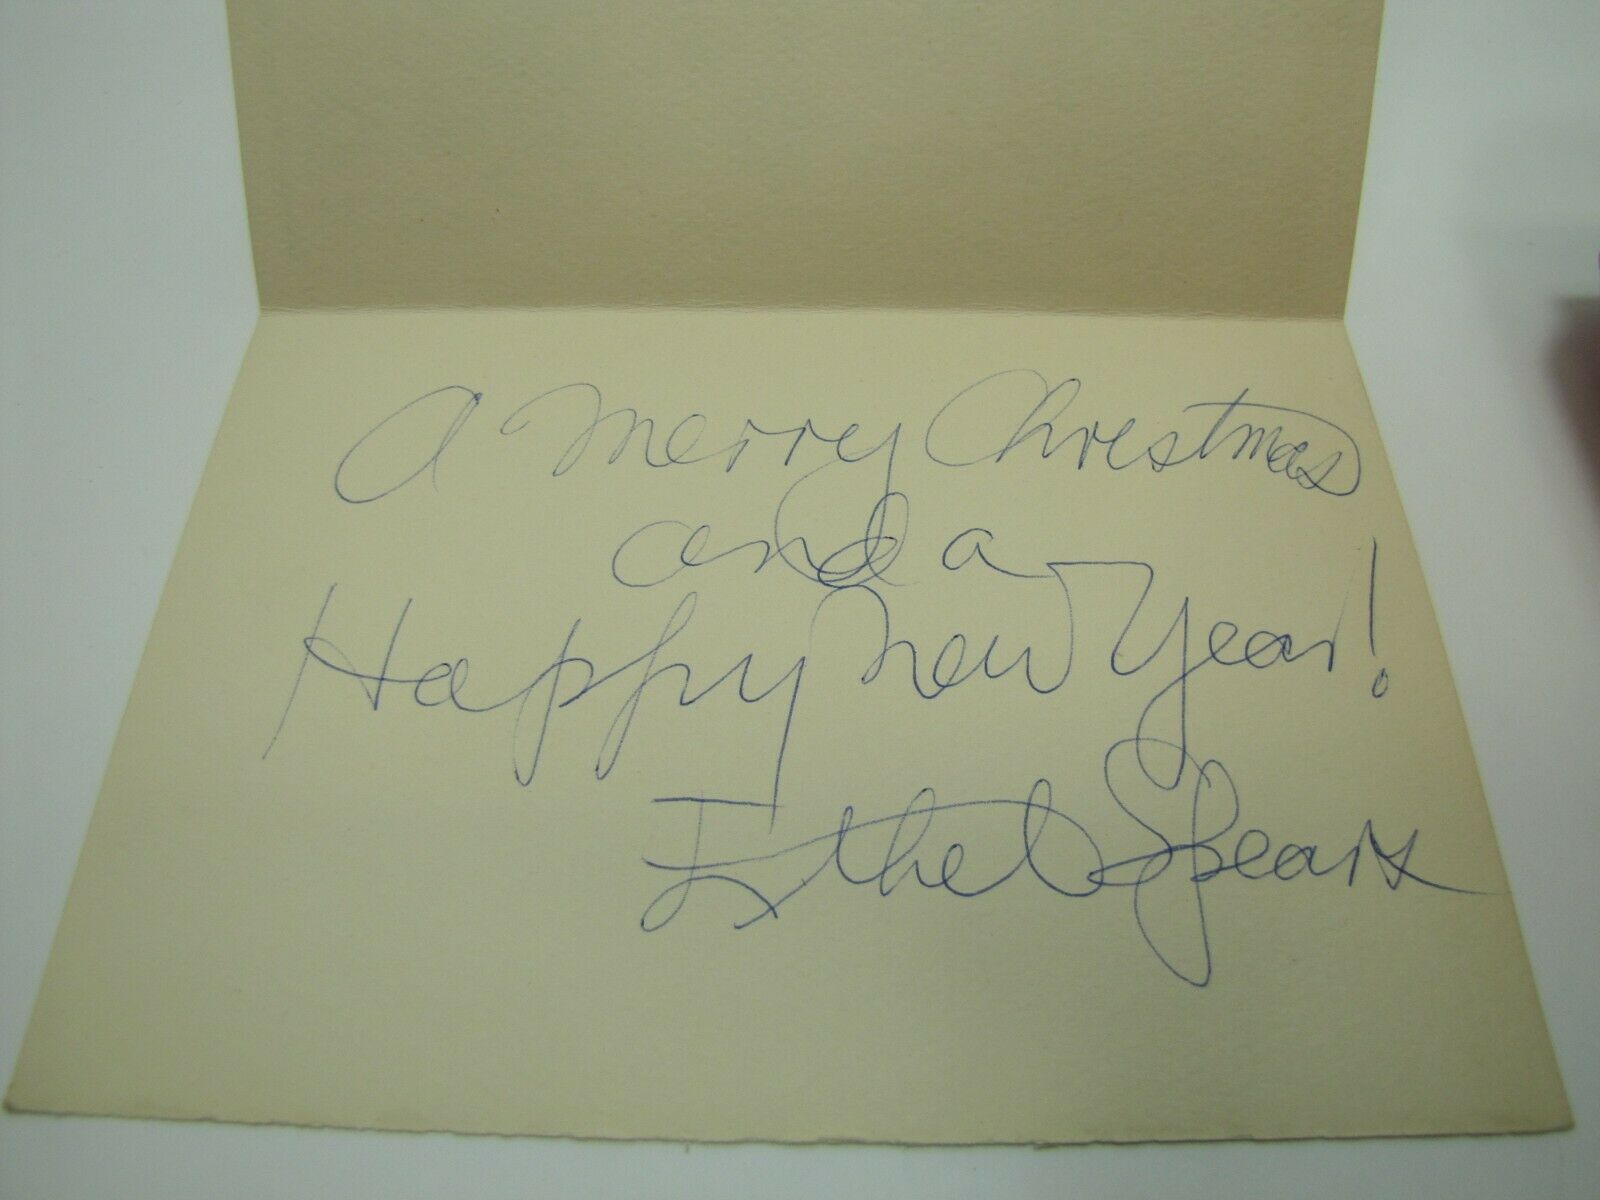 A Merry Christmas
and a
Happy New Year!
Ethel Spears